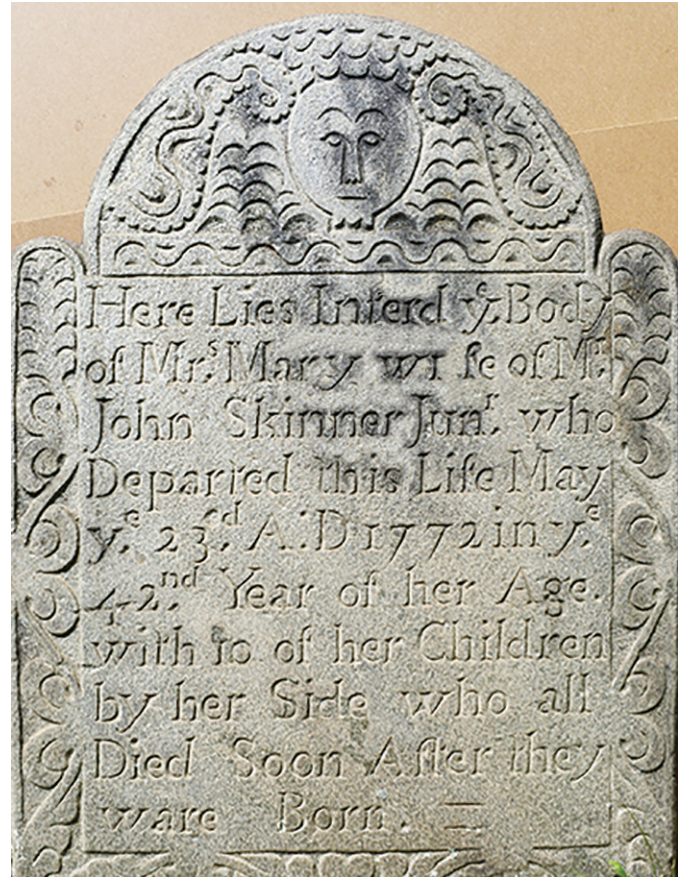 Here Lies Interd yͤ Body
of Mrˢ Mary wife of Mʳ
John Skinner Junʳ who
Departed this Life May
yͤ 23ᵈ A:D 1772 in yͤ
42ⁿᵈ Year of her Age.
with 10 of her Children
by her Side who all
Died Soon After they
ware Born.